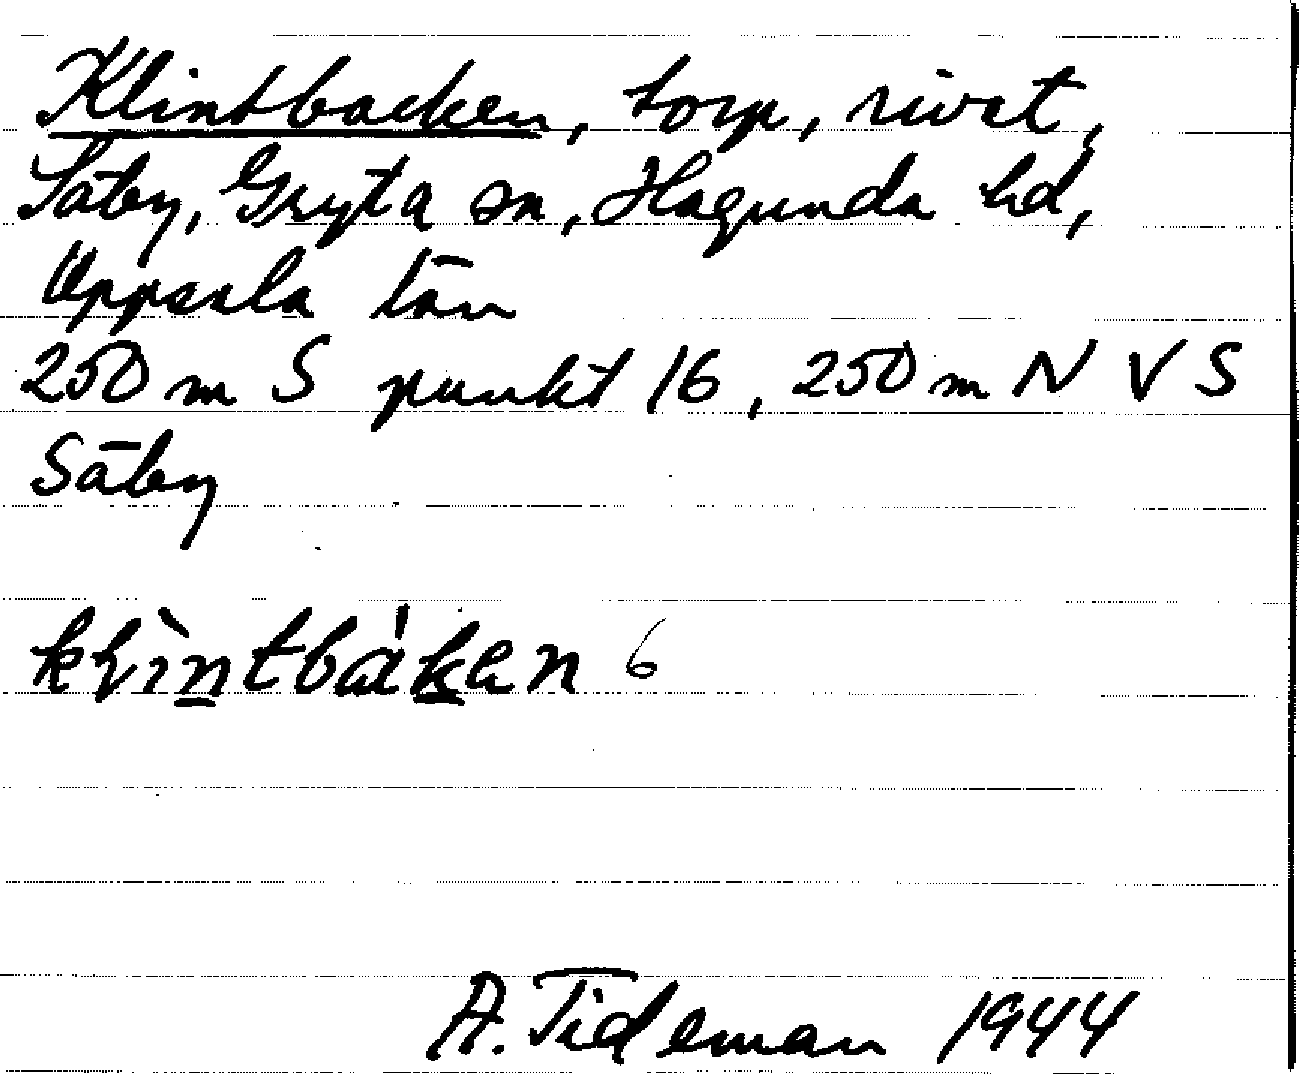 Klintbacken, torp, rivet,
Säby, Gryta sn, Hagunda hd,
Uppsala län
250 m S punkt 16, 250 m N V S
Säby
klìntbàken 6
A. Tideman 1944